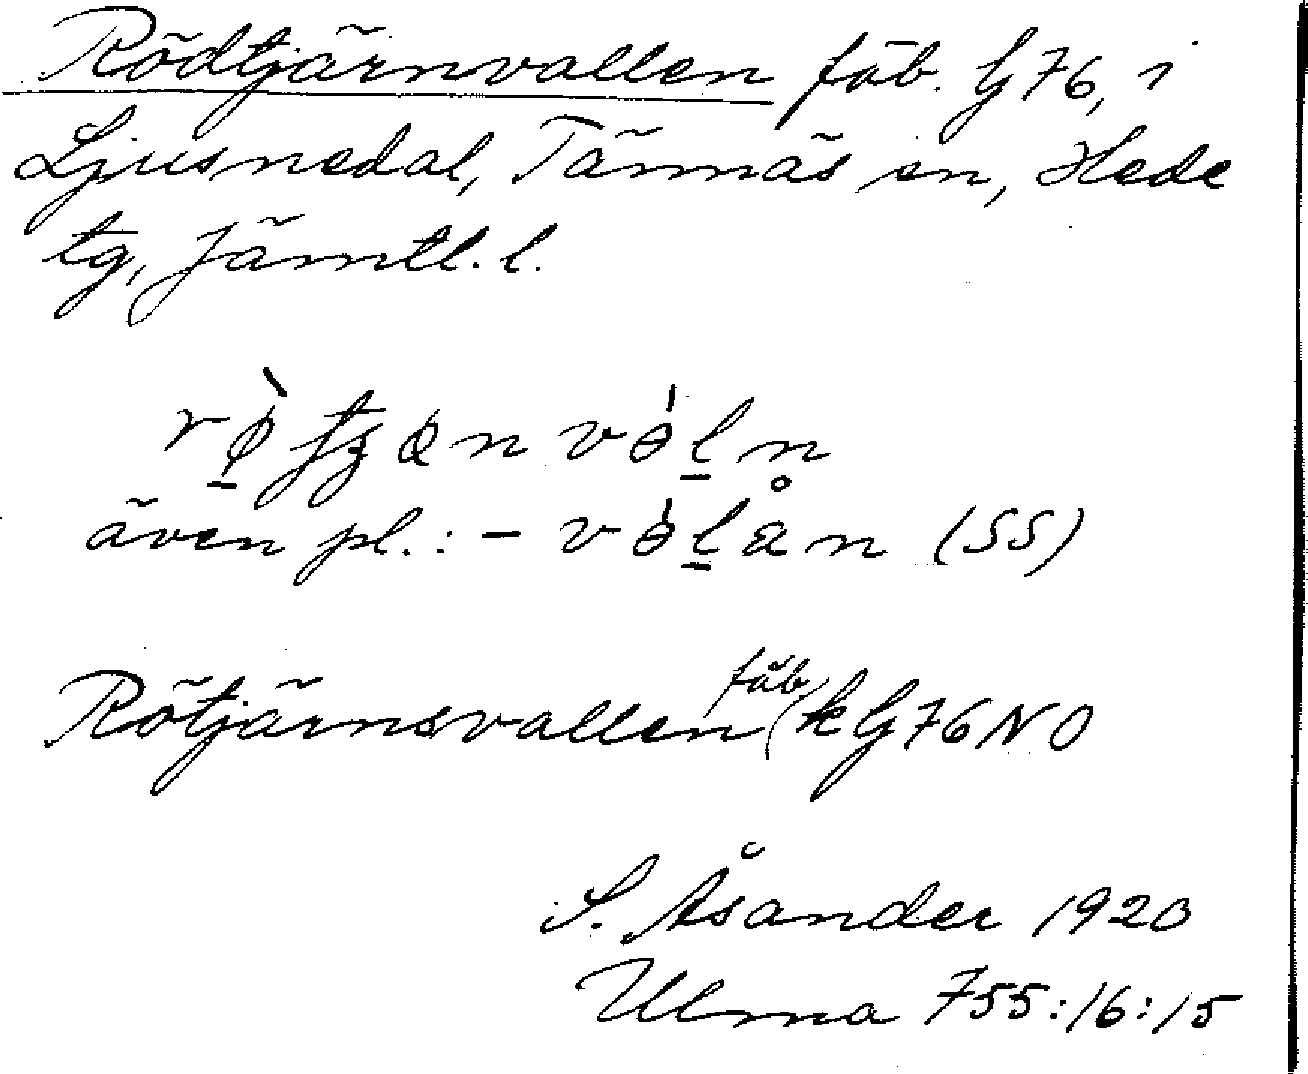 Rödtjärnvallen fäb. G76, i
Ljusnedal, Tännäs sn, Hede
tg, Jämtl. l.
även pl.: – (SS)
Rötjärnsvallen fäb. k G76NO
S. Åsander 1920
Ulma 755:16:15